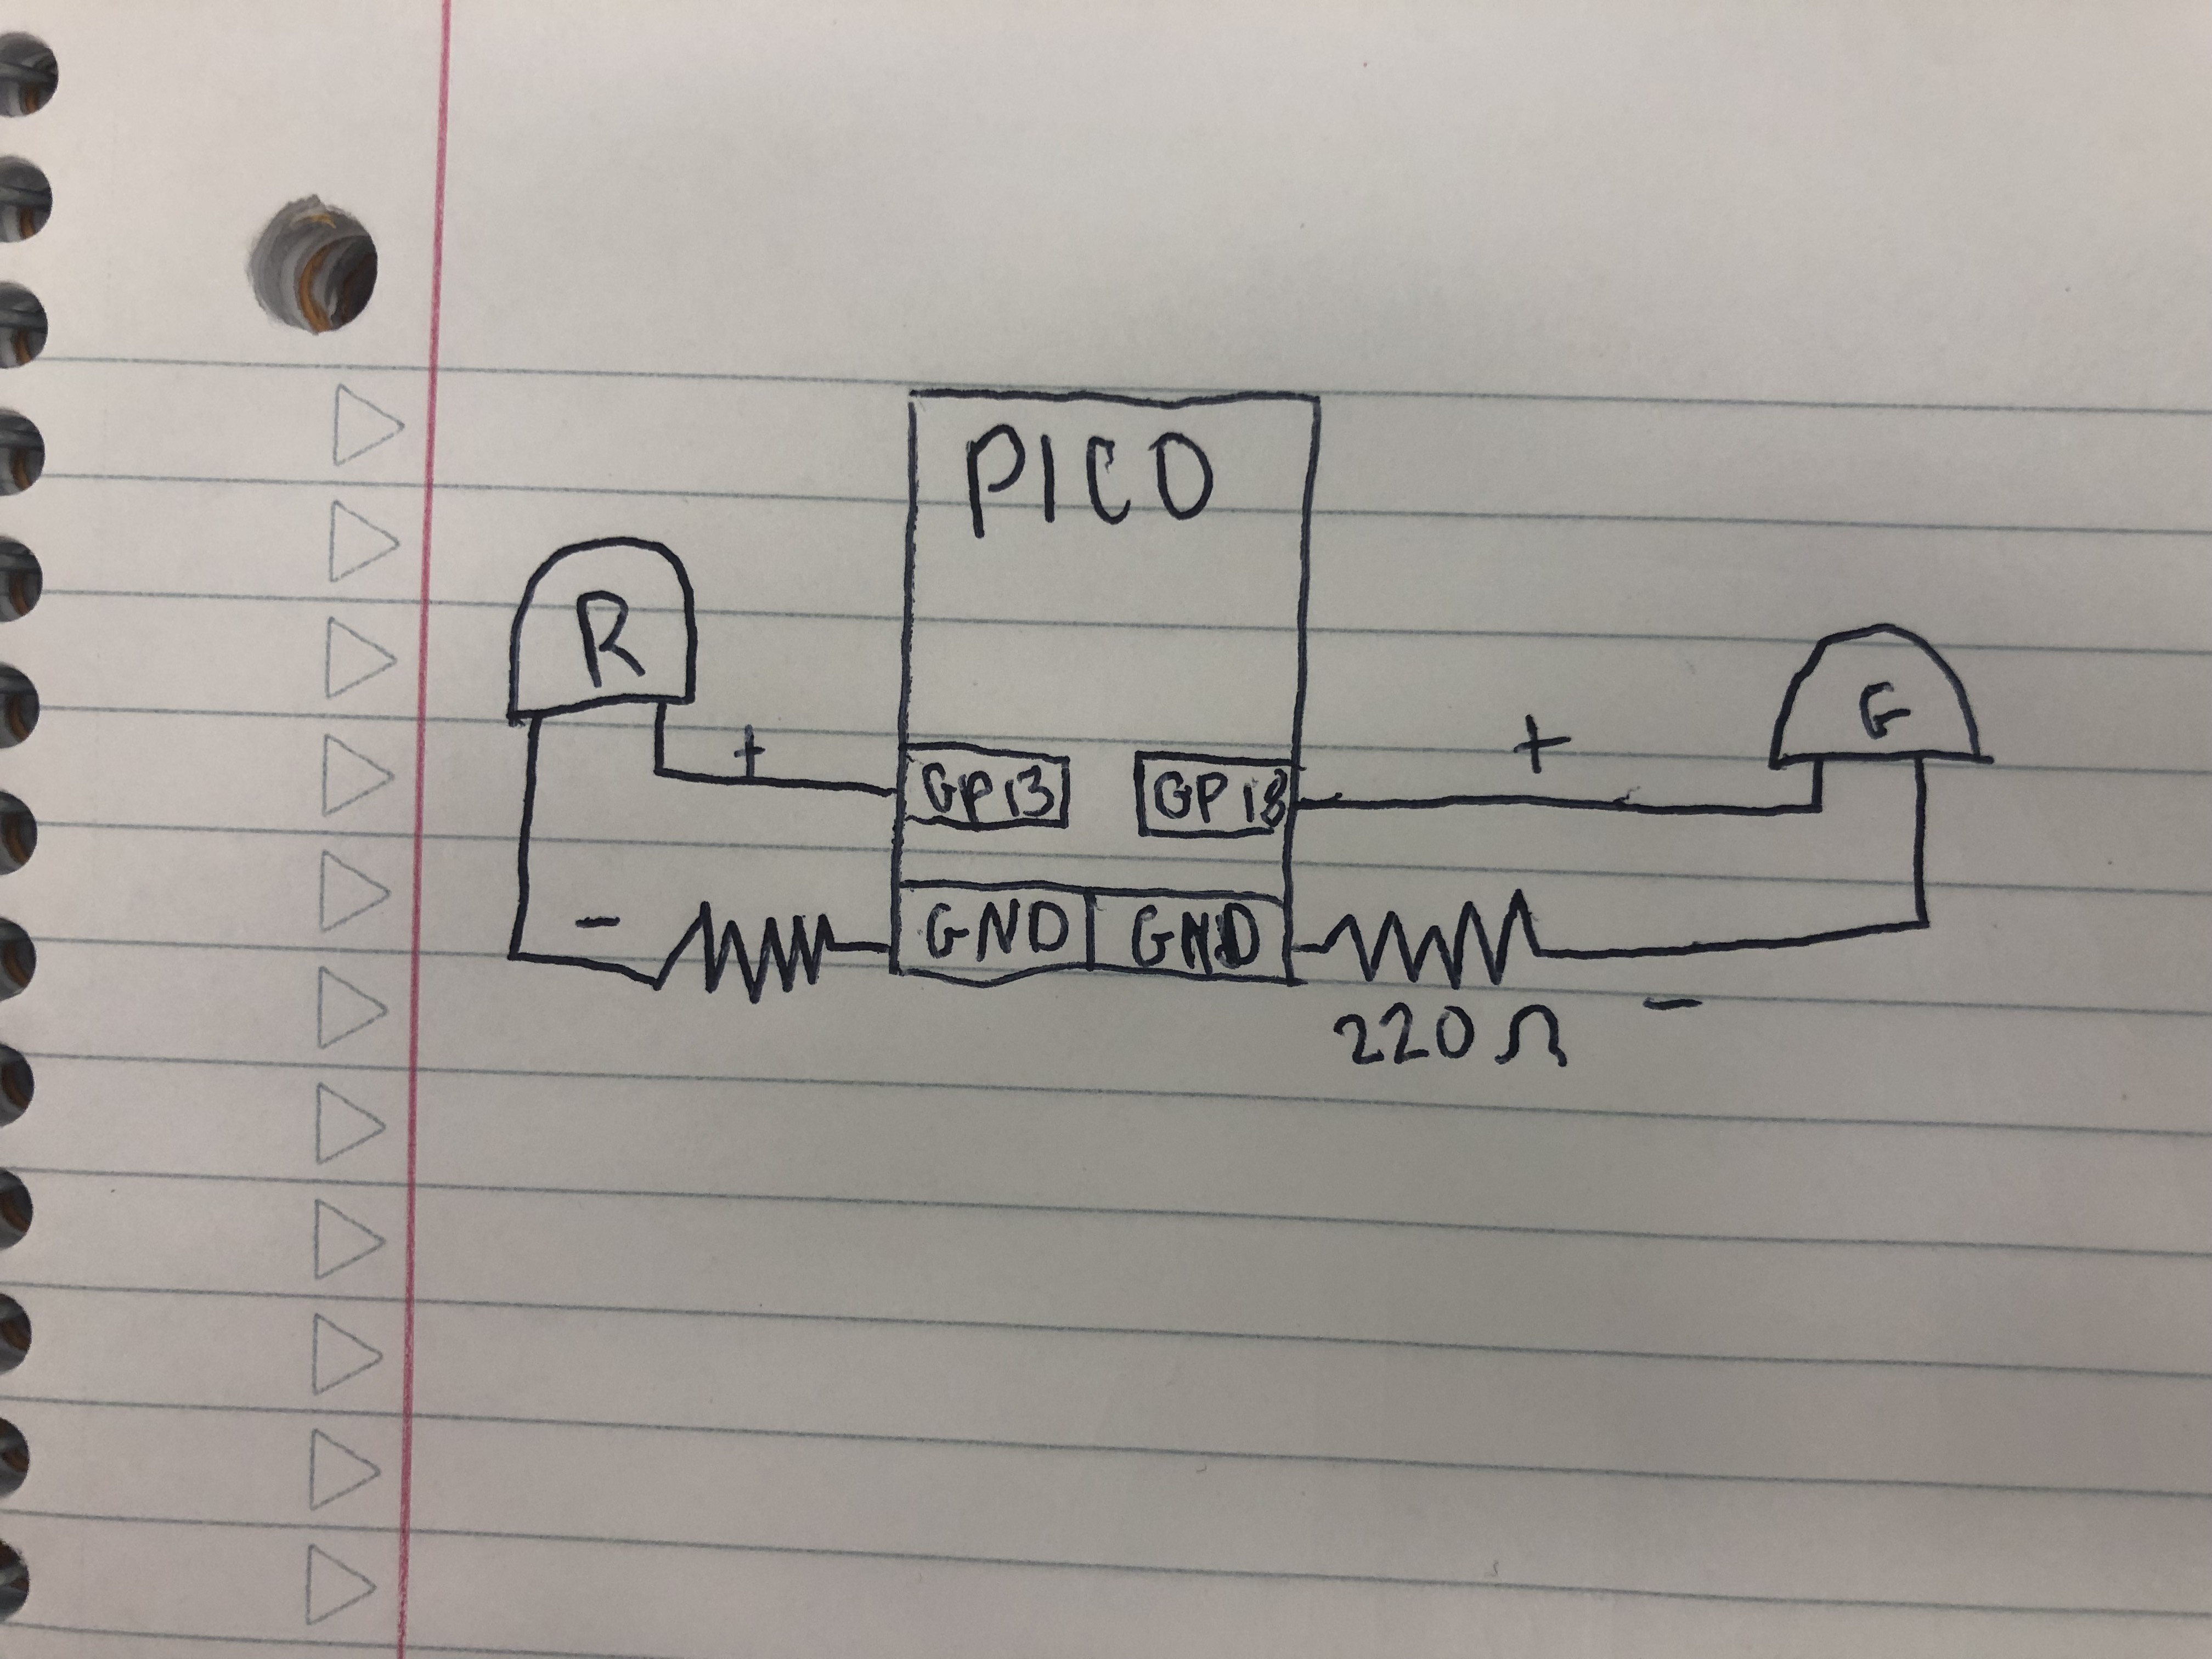 PICO
R
G
+
+
GP13
GP18
-
-
GND
GND
220Ω